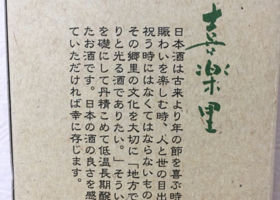 喜楽里
日本酒は古来より年の節を喜ぶ時
賑わいを楽しむ時、人と世の目出
祝う時にはなくてはならないもの
その郷里の文化を大切に「地方で
りと光る酒でありたい。」そうい
を礎にして丹精こめて低温長期醗
たお酒です。日本の酒の良さを感
ていただければ幸に存じます。